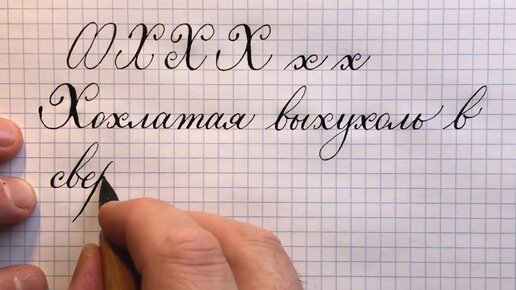 Х Х Х х х
Хохлатая выхухоль в
свер